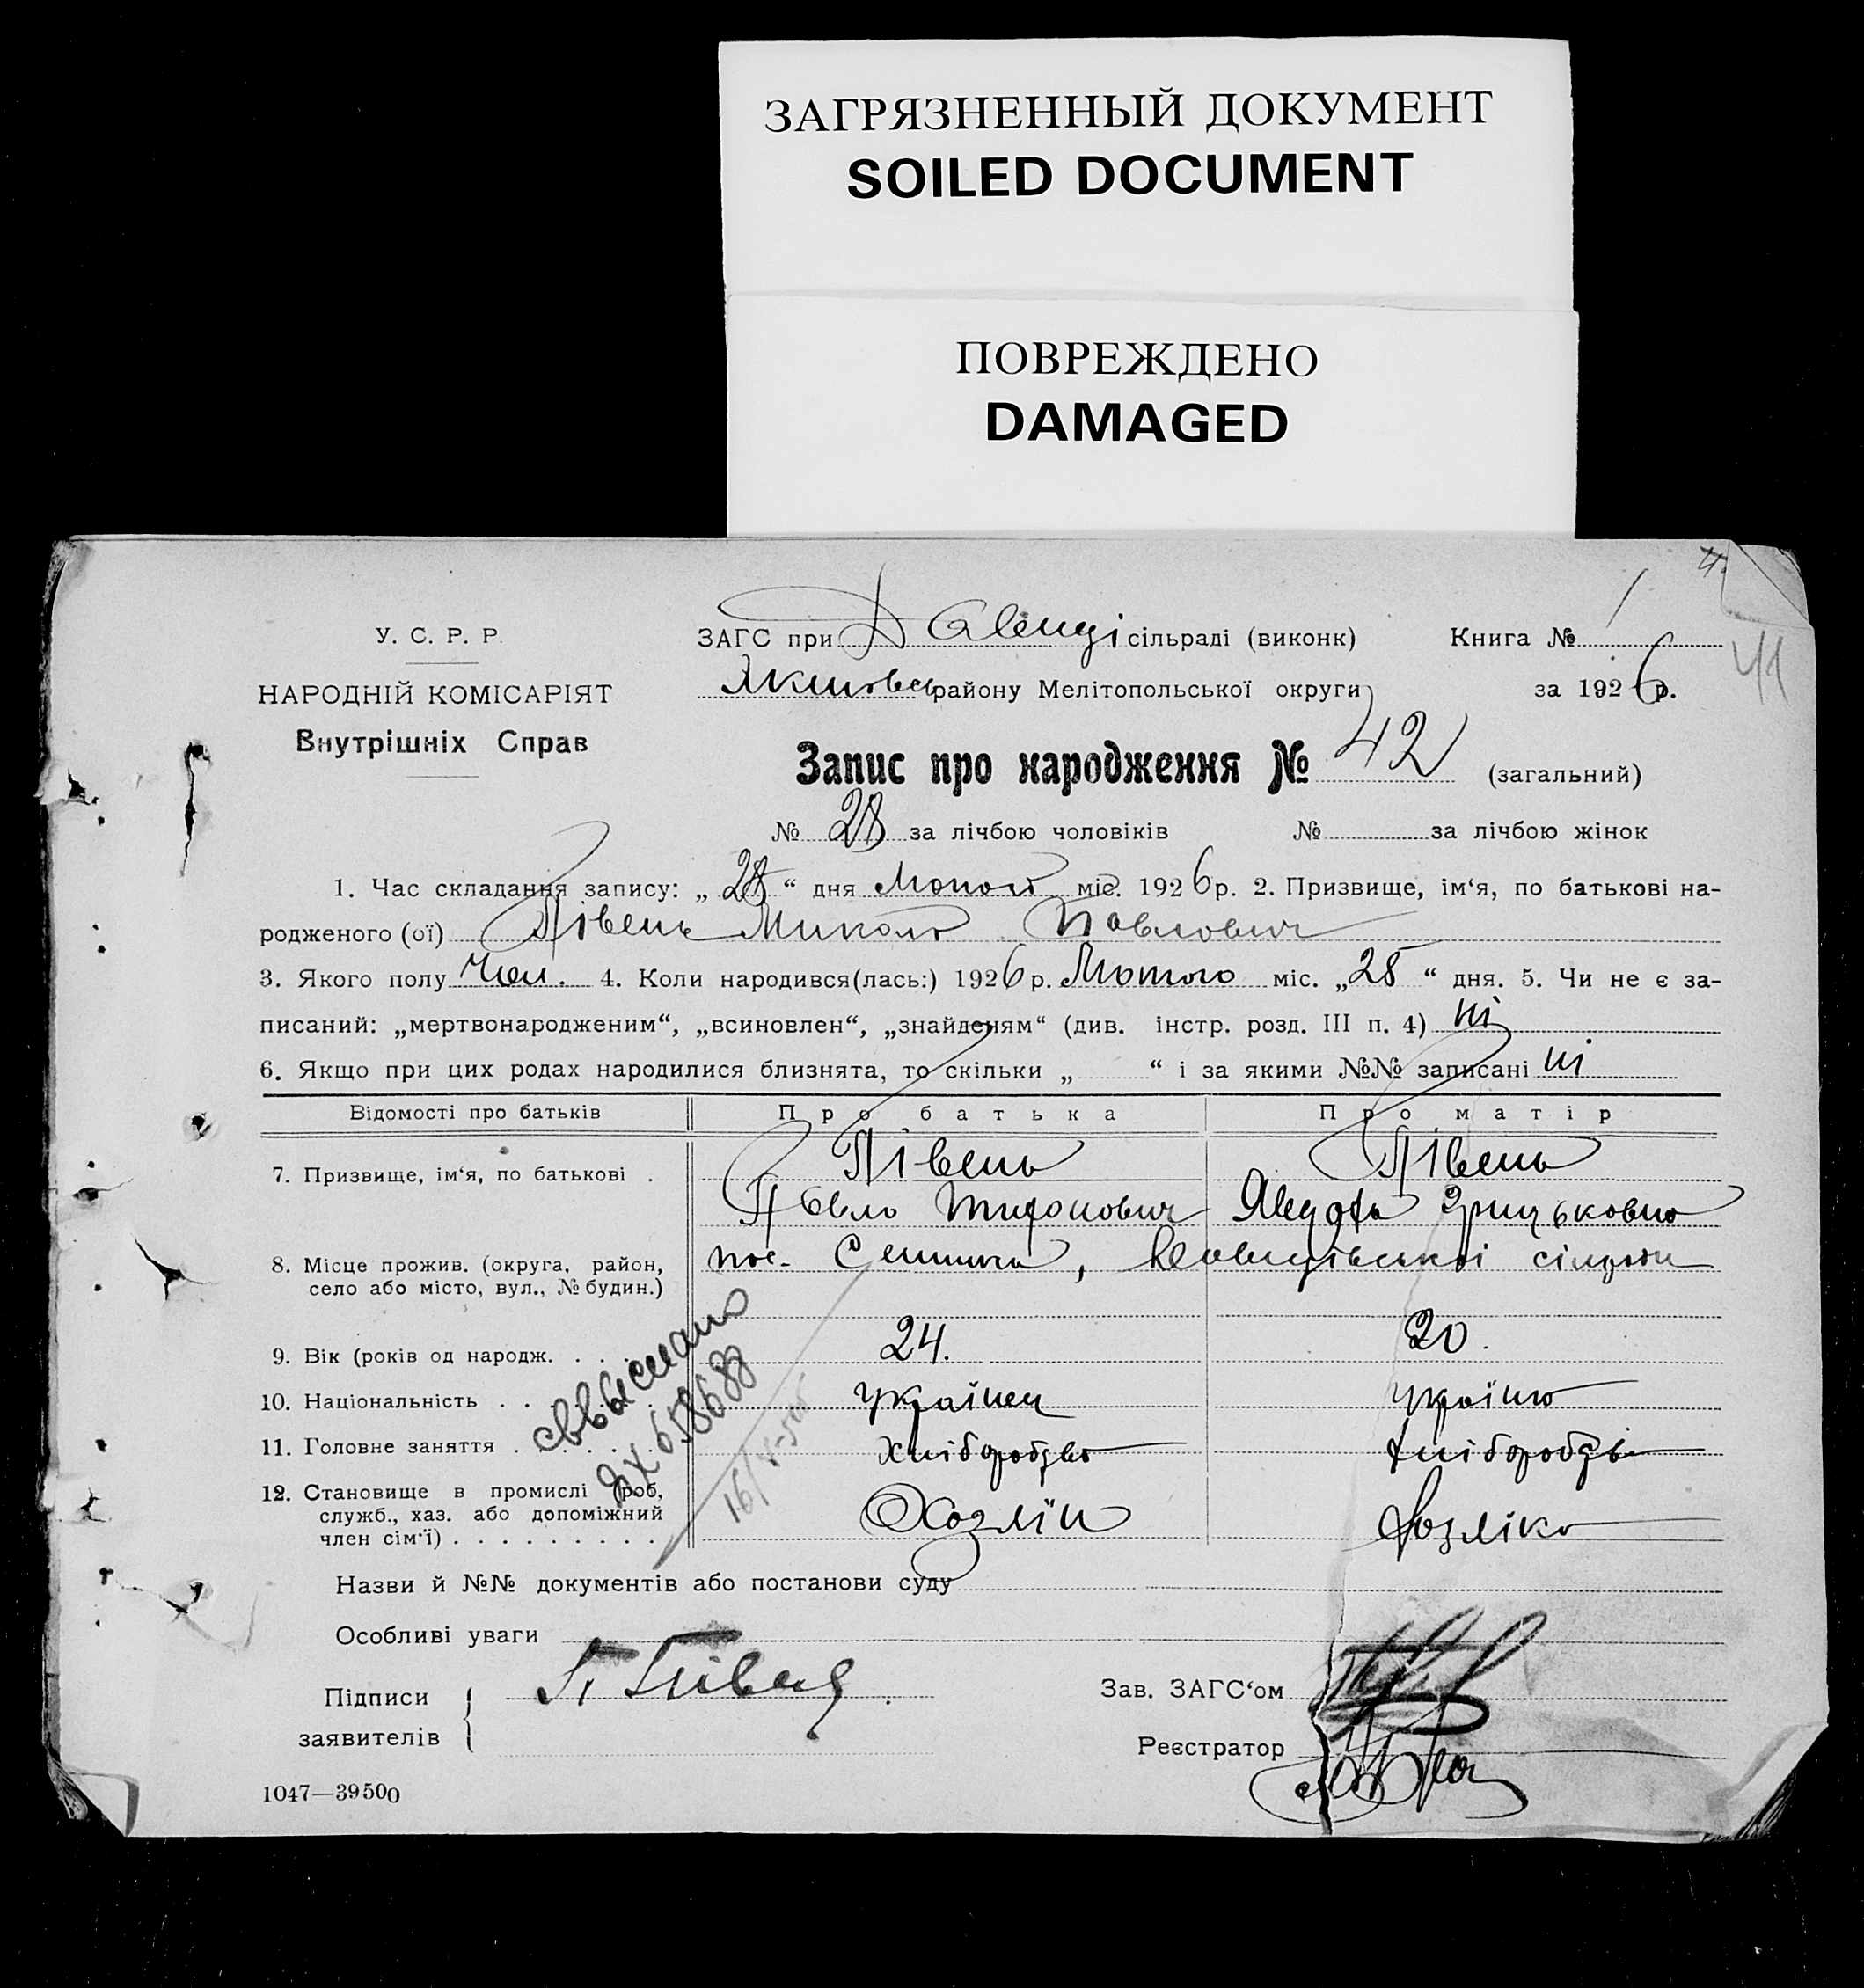 ЗАГРЯЗНЕННЫЙ ДОКУМЕНТ
SOILED DOCUMENT
ПОВРЕЖДЕНО
DAMAGED
У. С. Р. Р.
НАРОДНІЙ КОМІСАРІЯТ
Внутрішніх Справ
ЗАГС при сільраді (виконк)
Книга № 1
41
району Мелітопольської округи
за 1926 р.
Запис про народження № 42 (загальний)
№ 28 за лічбою чоловіків № за лічбою жінок
1. Час складання запису: „28“ дня міс. 1926 р. 2. Призвище, ім‘я, по батькові на-
родженого (ої) Півень Микола Павлович
3. Якого полу Чол. 4. Коли народився(лась:) 1926 р. Лютого міс. „25“ дня. 5. Чи не є за-
писаний: „мертвонародженим“, „всиновлен“, „знайденям“ (див. інстр. розд. III п. 4) ні
6. Якщо при цих родах народилися близнята, то скільки „ “ і за якими №№ записані ні
Відомості про батьків Про батька Про матір
7. Призвище, ім‘я, по батькові . Півень Півень
Павло Тифонович Явдоха Грицьковна
8. Місце прожив. (округа, район, пос.
село або місто, вул., № будин.)
9. Вік (років од народж. . . . 24. 20.
10. Національність . . . . . українец україна
11. Головне заняття . . . . . хліборобство хліборобство
12. Становище в промислі (роб,
служб., хаз. або допоміжний Хозяїн Хозяїка
член сім‘ї) . . . . . . . . .
ЯХ 658688
Назви й №№ документів або постанови суду
Особливі уваги
Підписи
заявителів
Зав. ЗАГС‘ом
Реєстратор
1047—39500